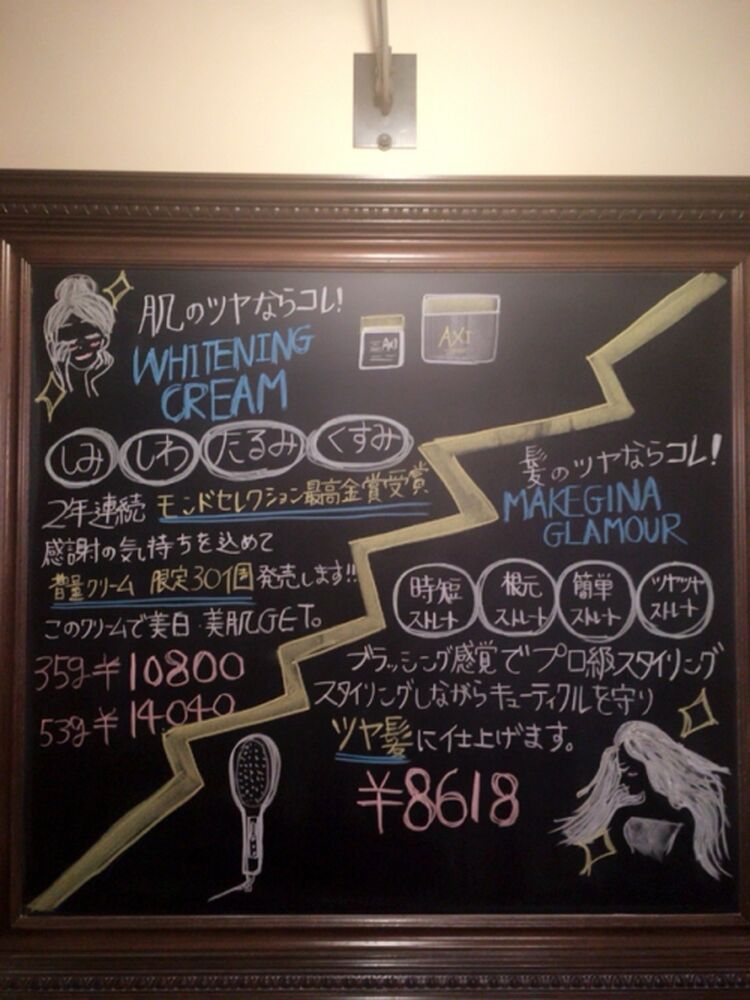 肌のツヤならコレ!
WHITENING
CREAM
AXI
AXI
しみ しわ たるみ くすみ
2年連続 モンドセレクション最高金賞受賞
感謝の気持ちを込めて
増量クリーム 限定30個 発売します!!
このクリームで美白・美肌GET。
35g ¥10800
53g ¥14040
髪のツヤならコレ!
MAKEGINA
GLAMOUR
時短ストレート 根元ストレート 簡単ストレート ツヤツヤストレート
ブラッシング感覚でプロ級スタイリング
スタイリングしながらキューティクルを守り
ツヤ髪に仕上げます。
¥8618